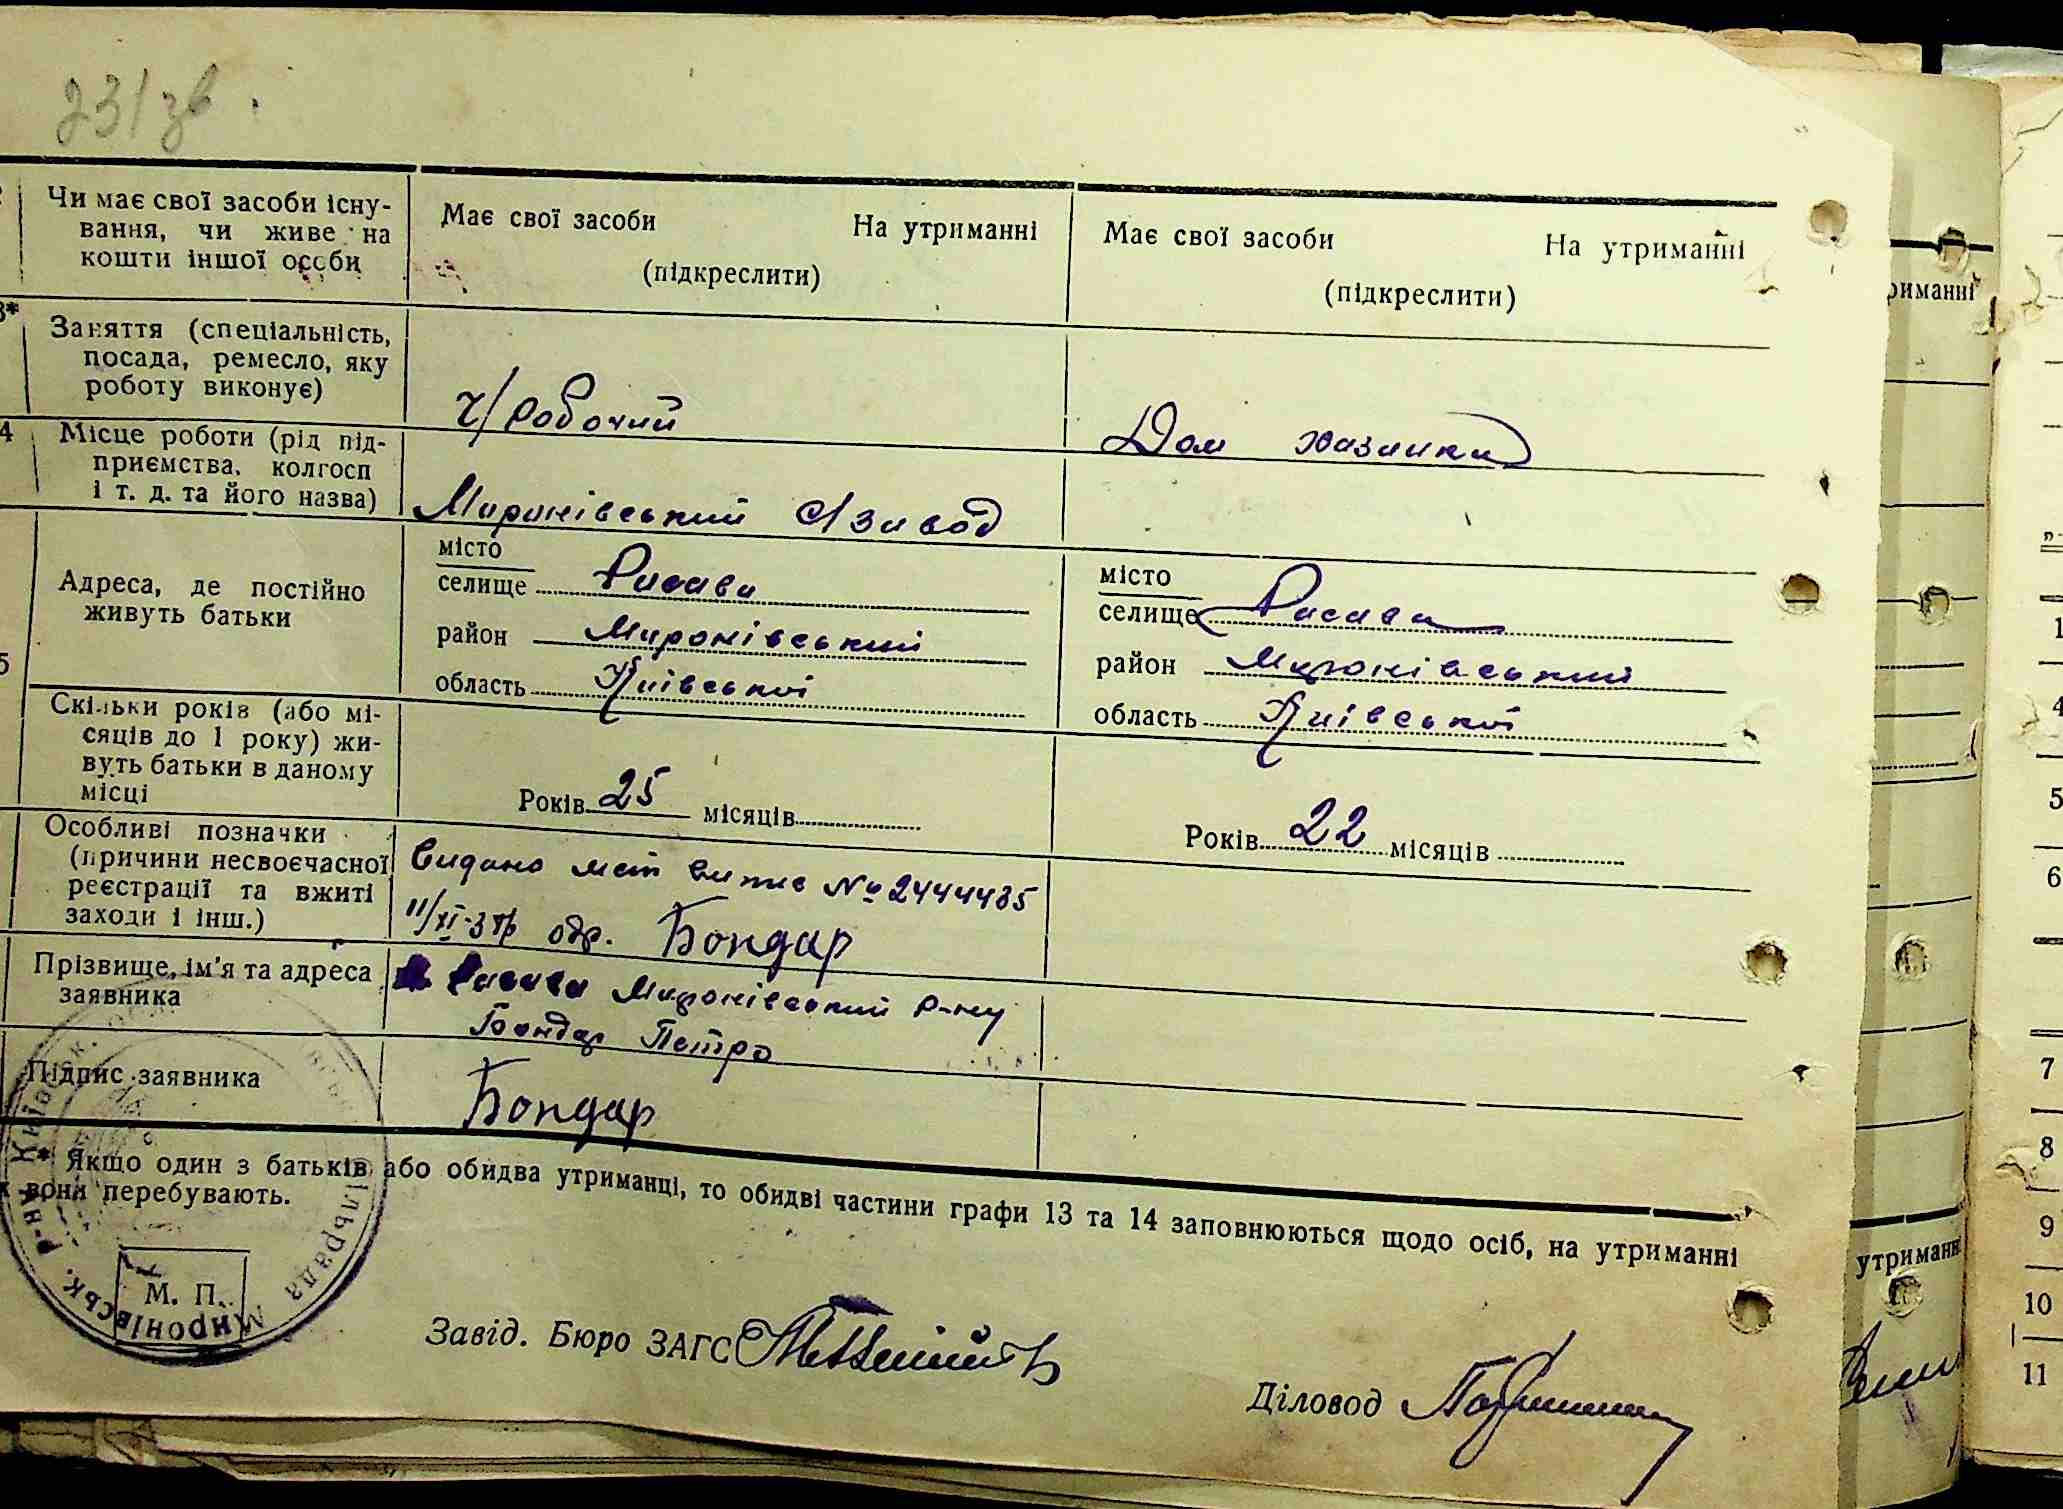 231 зв.
Чи має свої засоби існу-
вання, чи живе на
кошти іншої особи
Має свої засоби На утриманні
(підкреслити)
Має свої засоби На утриманні
(підкреслити)
3*
Заняття (спеціальність,
посада, ремесло, яку
роботу виконує)
ч/робочий
Дом хазяйка
4
Місце роботи (рід під-
приємства, колгосп
і т. д. та його назва)
Миронівський с/завод
5
Адреса, де постійно
живуть батьки
місто
селище Расава
район Миронівський
область Київської
місто
селище Расава
район Миронівський
область Київської
Скільки років (або мі-
сяців до 1 року) жи-
вуть батьки в даному
місці
Років 25 місяців
Років 22 місяців
Особливі позначки
(причини несвоєчасної
реєстрації та вжиті
заходи і інш.)
Видано мет випис № 2444435
11/XI-37р одр. Бондар
Прізвище, ім'я та адреса
заявника
Расава Миронівський р-ну
Бондар Петро
Підпис заявника
Бондар
* Якщо один з батьків або обидва утриманці, то обидві частини графи 13 та 14 заповнюються щодо осіб, на утриманні
вони перебувають.
М. П.
сільрада Миронівськ. р-ну Київськ. обл.
Завід. Бюро ЗАГС
Діловод
риманні
утриманні
1
4
5
6
7
8
9
10
11